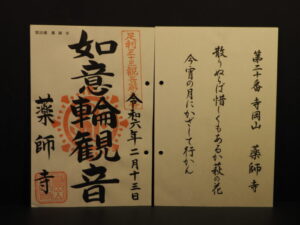 足利三十三観音霊場
如意輪観音
令和六年二月十三日
薬師寺
第二十番 寺岡山 薬師寺
散りぬらば惜しくもあるか萩の花
今宵の月にかざして行かん